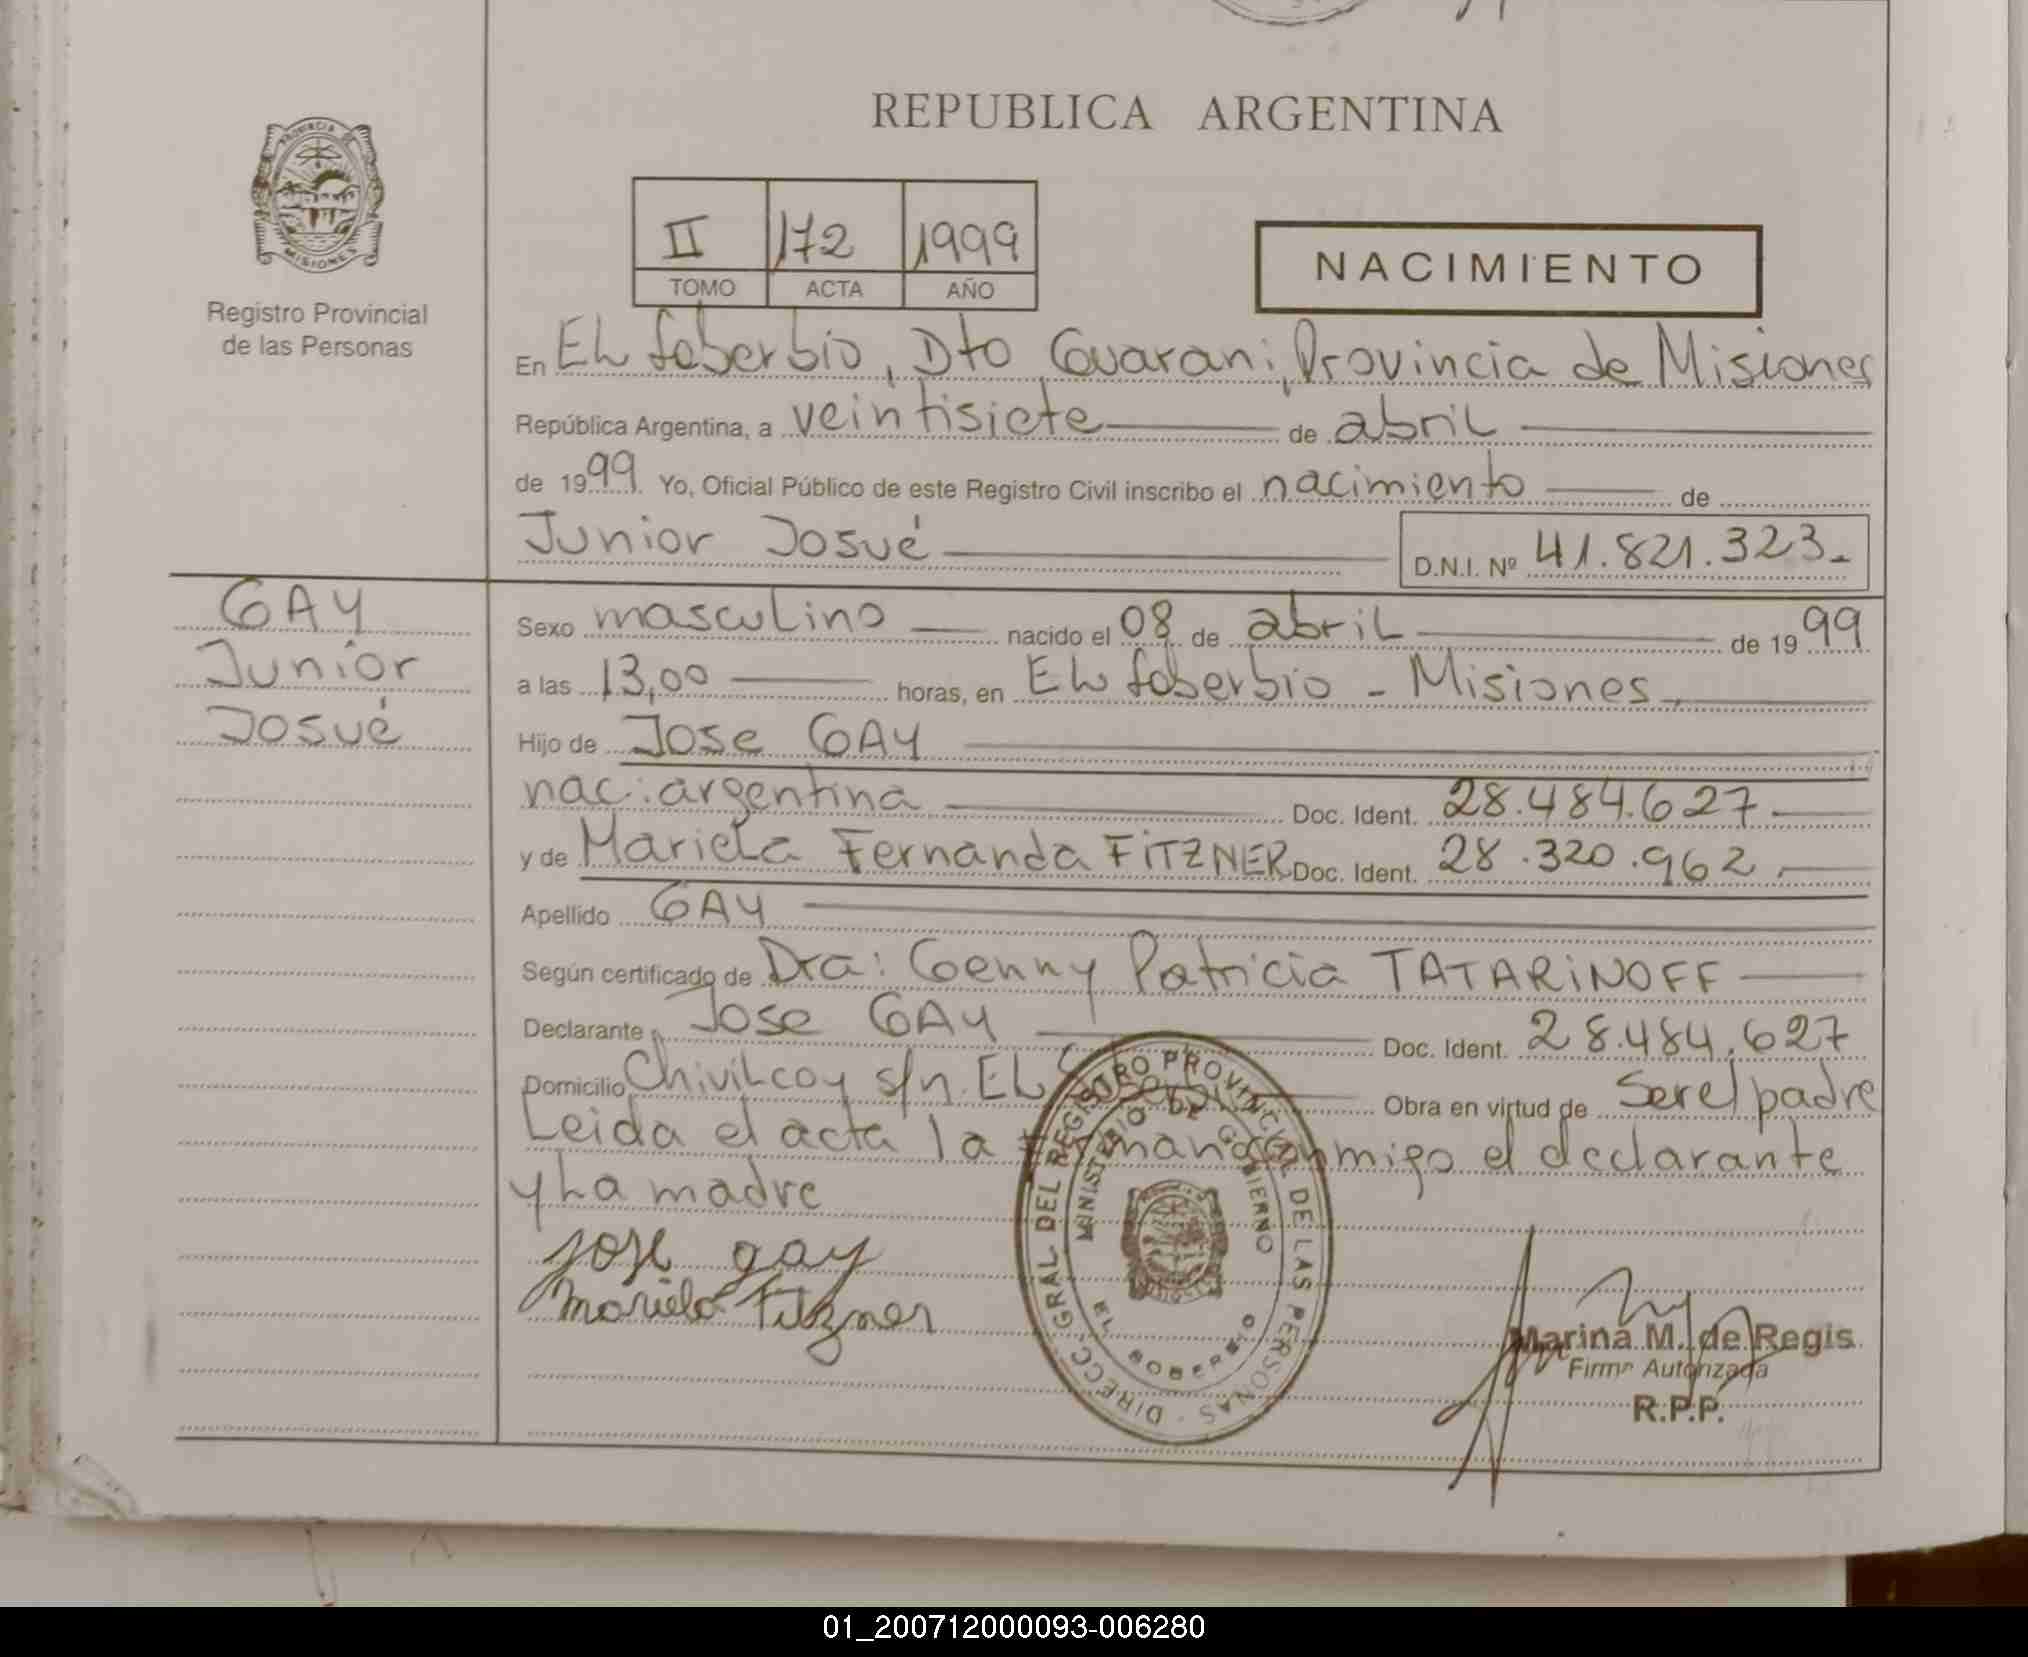 REPUBLICA ARGENTINA
PROVINCIA DE
MISIONES
Registro Provincial
de las Personas
II 172 1999
TOMO ACTA AÑO
NACIMIENTO
En EL Soberbio, Dto Guarani, Provincia de Misiones
República Argentina, a veintisiete de abril
de 1999 Yo, Oficial Público de este Registro Civil inscribo el nacimiento de
Junior Josué D.N.I. Nº 41.821.323.-
GAY
Junior
Josué
Sexo masculino nacido el 08 de abril de 1999
a las 13,00 horas, en EL Soberbio - Misiones
Hijo de Jose GAY
nac: argentina Doc. Ident. 28.484.627
y de Mariela Fernanda FiTZNER Doc. Ident. 28.320.962
Apellido GAY
Según certificado de Dra: Genny Patricia TATARiNOFF
Declarante Jose GAY Doc. Ident. 28.484.627
Domicilio Chivilcoy s/n. EL Soberbio Obra en virtud de Ser el padre
Leida el acta la firman conmigo el declarante
y La madre
jose gay
Mariela Fitzner
DIRECC. GRAL DEL REGISTRO PROVINCIAL DE LAS PERSONAS
MINISTERIO DE GOBIERNO
EL SOBERBIO
Marina M. de Regis
Firma Autorizada
R.P.P.
01_200712000093-006280